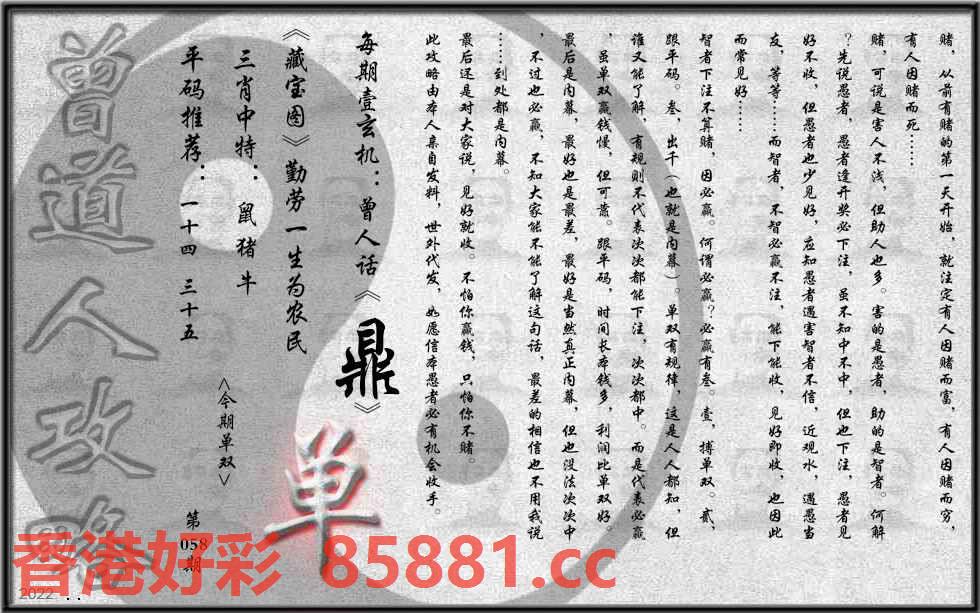 赌，从前有赌的第一天开始，就注定有人因赌而富，有人因赌而穷，
有人因赌而死……
赌，可说是害人不浅，但助人也多。害的是愚者，助的是智者。何解
？先说愚者，愚者逢开奖必下注，虽不知中不中，但也下注，愚者见
好不收，但愚者也少见好，应知愚者遇害智者不信，近观水，遇愚当
友，等等……而智者，不智必赢不注，能下能收，见好即收，也因此
而常见好……
智者下注不算赌，因必赢。何谓必赢？必赢有叁。壹，搏单双。贰，
跟平码。叁，出千（也就是内幕）。单双有规律，这是人人都知，但
谁又能了解，有规则不代表次次都能下注，次次都中。而是代表必赢
，虽单双赢钱慢，但可靠。跟平码，时间长本钱多，利润比单双好。
最后是内幕，最好也是最差，最好是当然真正内幕，但也没法次次中
，不过也必赢，不知大家能不能了解这句话，最差的相信也不用我说
……到处都是内幕。
最后还是对大家说，见好就收。不怕你赢钱，只怕你不赌。
此攻略由本人亲自发料，世外代发，如愿信本愚者必有机会收手。
每期壹玄机：曾人话《鼎》
《藏宝图》勤劳一生为农民
三肖中特：鼠猪牛
平码推荐：一十四 三十五
<今期单双>
单
第058期
曾道人攻略
香港好彩 85881.cc
2022